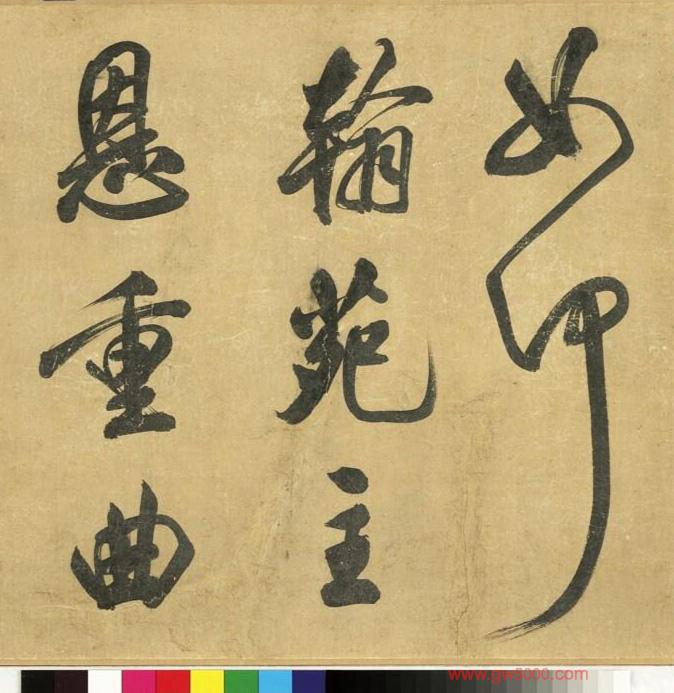 如何
翰苑主
恩重曲
www.gw5000.com